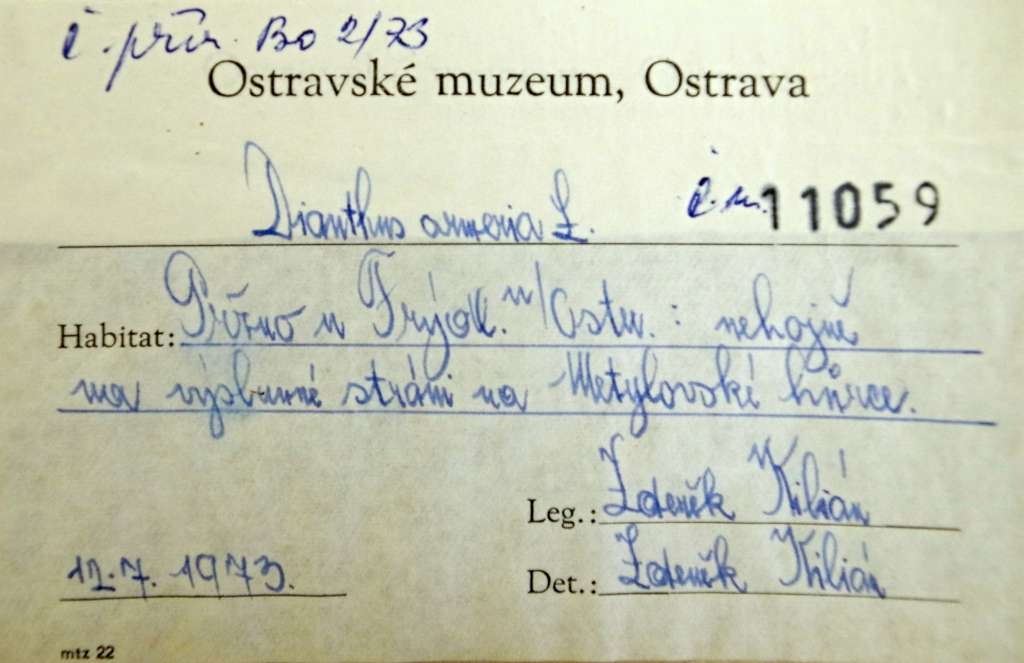 č. přír. Bo 2/73
Ostravské muzeum, Ostrava
Dianthus armeria L. i.n. 11059
Habitat: Pržno u Frýdl. n/Ostr. : nehojně
na výslunné stráni na Metylovské hůrce.
Leg.: Zdeněk Kilián
12.7. 1973. Det.: Zdeněk Kilián
mtz 22